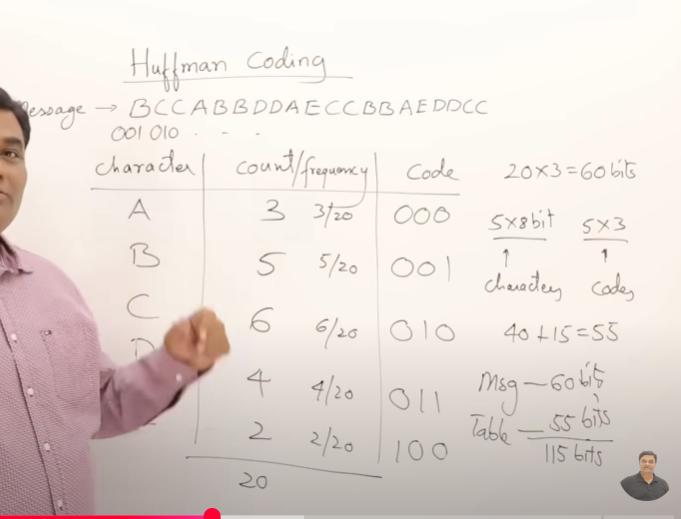 Huffman Coding
Message → BCCABBDDAECCBBAEDDCC
001 010 . - .
character count/frequency Code
A 3 3/20 000
B 5 5/20 001
C 6 6/20 010
D 4 4/20 011
2 2/20 100
20
20x3=60bits
5x8bit 5x3
↑ ↑
characters codes
40+15=55
Msg — 60bits
Table — 55 bits
115 bits